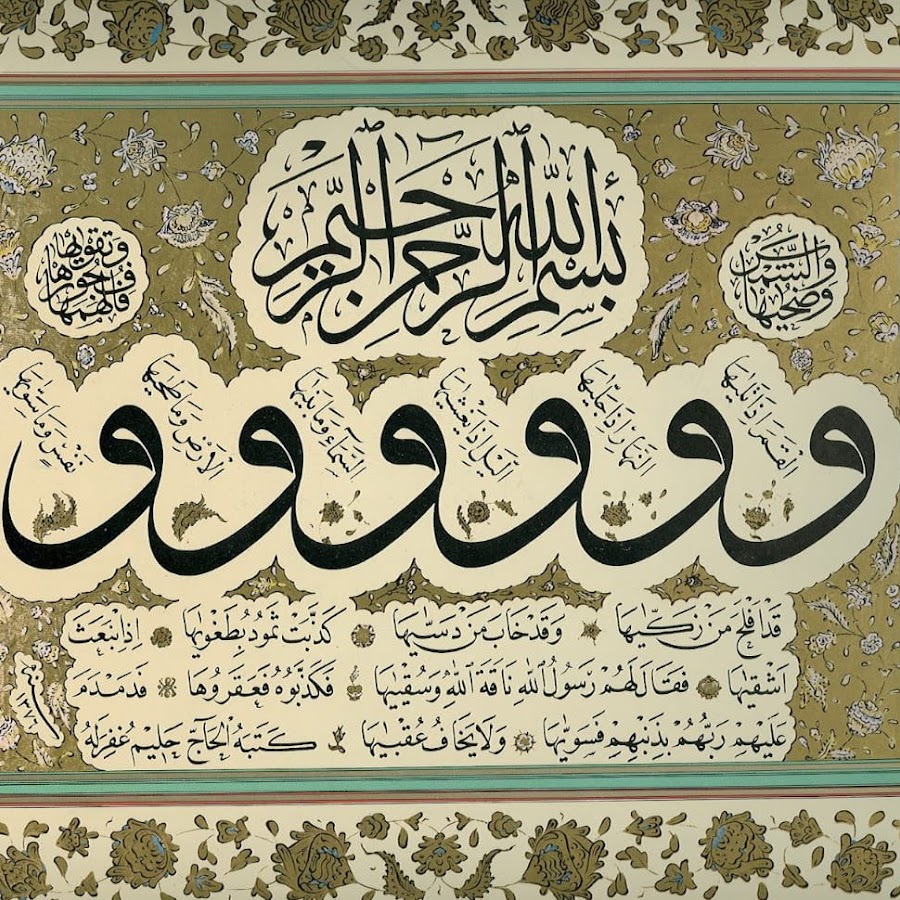 بِسْمِ اللّٰهِ الرَّحْمٰنِ الرَّحِيمِ
وَالشَّمْسِ وَضُحٰيهَا
وَ الْقَمَرِ اِذَا تَلٰيهَا
وَ النَّهَارِ اِذَا جَلّٰيهَا
وَ الَّيْلِ اِذَا يَغْشٰيهَا
وَ السَّمَآءِ وَمَا بَنٰيهَا
وَ الْاَرْضِ وَمَا طَحٰيهَا
وَ نَفْسٍ وَمَا سَوّٰيهَا
فَاَلْهَمَهَا فُجُورَهَا وَتَقْوٰيهَا
قَدْ اَفْلَحَ مَنْ زَكّٰيهَا وَقَدْ خَابَ مَنْ دَسّٰيهَا كَذَّبَتْ ثَمُودُ بِطَغْوٰيهَا اِذِ انْبَعَثَ
اَشْقٰيهَا فَقَالَ لَهُمْ رَسُولُ اللّٰهِ نَاقَةَ اللّٰهِ وَسُقْيٰيهَا فَكَذَّبُوهُ فَعَقَرُوهَا فَدَمْدَمَ
عَلَيْهِمْ رَبُّهُمْ بِذَنْبِهِمْ فَسَوّٰيهَا وَلَا يَخَافُ عُقْبٰيهَا كَتَبَهُ الْحَاجّ حَلِيم غُفِرَ لَهُ